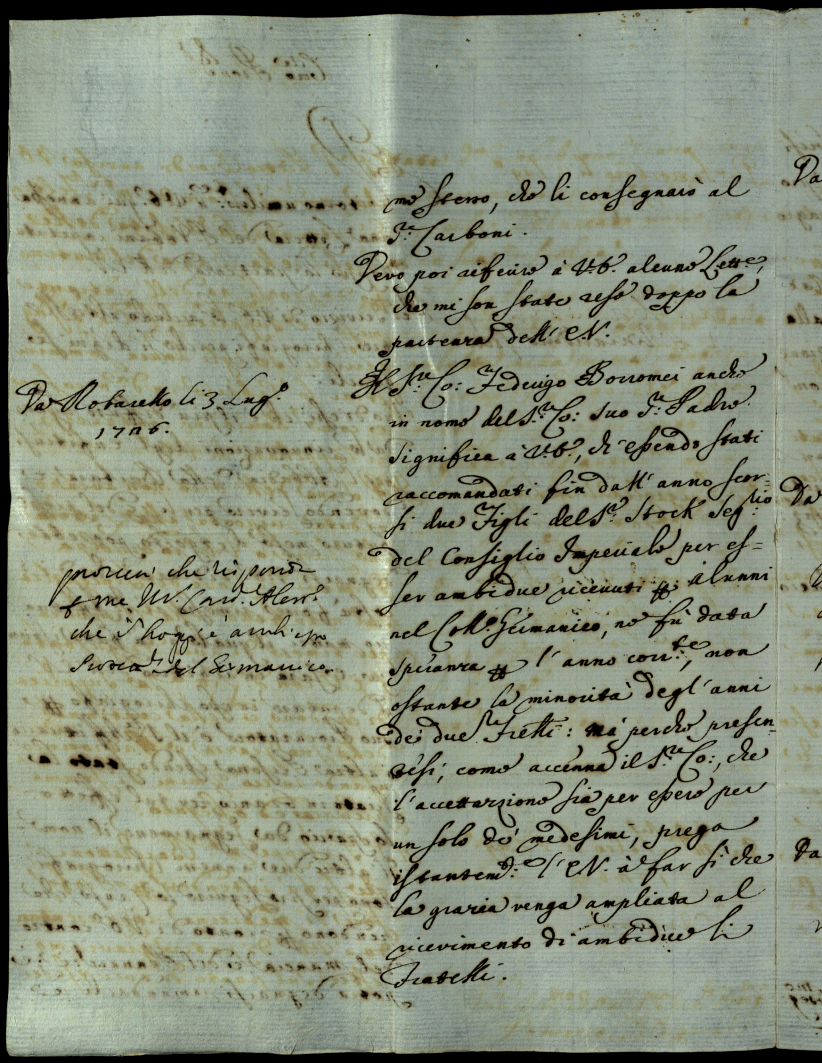 mo stesso, che li consegnarò al
S.r Carboni.
Devo poi riferire à V.E. alcune Lett.e,
che mi son state rese doppo la
partenza dell' E.V.
Da Robarello li 3. Lug.o
1726.
Il S.r Co: Federigo Borromei anche
in nome del S.r Co: suo S.r Padre
significa à V.E., ch'essendo stati
raccomandati fin dall' anno scor-
si due Figli del S.r Stock Seg.rio
del Consiglio Imperiale per es=
ser ambidue ricevuti p alunni
nel Coll.o Germanico, ne fù data
speranza p l'anno corr.te, non
ostante la minorità degl'anni
dei due Fretti: mà perche presen-
tesi, come accenna il S.r Co:, che
l'accettazzione sia per essere per
un solo de' medesimi, prega
istantem.e l'E.V. à far sì che
la grazia venga ampliata al
ricevimento di ambidue li
Fratelli.
che risponda
p me M.r Card. Aless.o
che è
del Germanico